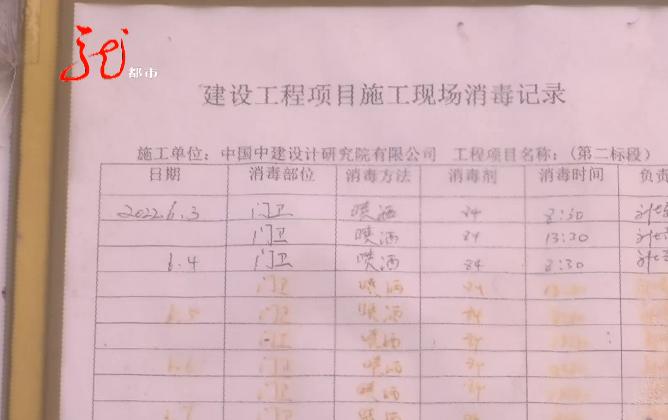 龙
都市
建设工程项目施工现场消毒记录
施工单位：中国中建设计研究院有限公司 工程项目名称：（第二标段）
日期 消毒部位 消毒方法 消毒剂 消毒时间 负责
2022.6.3 门卫 喷洒 84 8:30
门卫 喷洒 84 13:30
6.4 门卫 喷洒 84 8:30
门卫 喷洒 84
6.5 门卫 喷洒 84
门卫 喷洒 84
6.6 门卫 喷洒 84
门卫 喷洒 84
喷洒